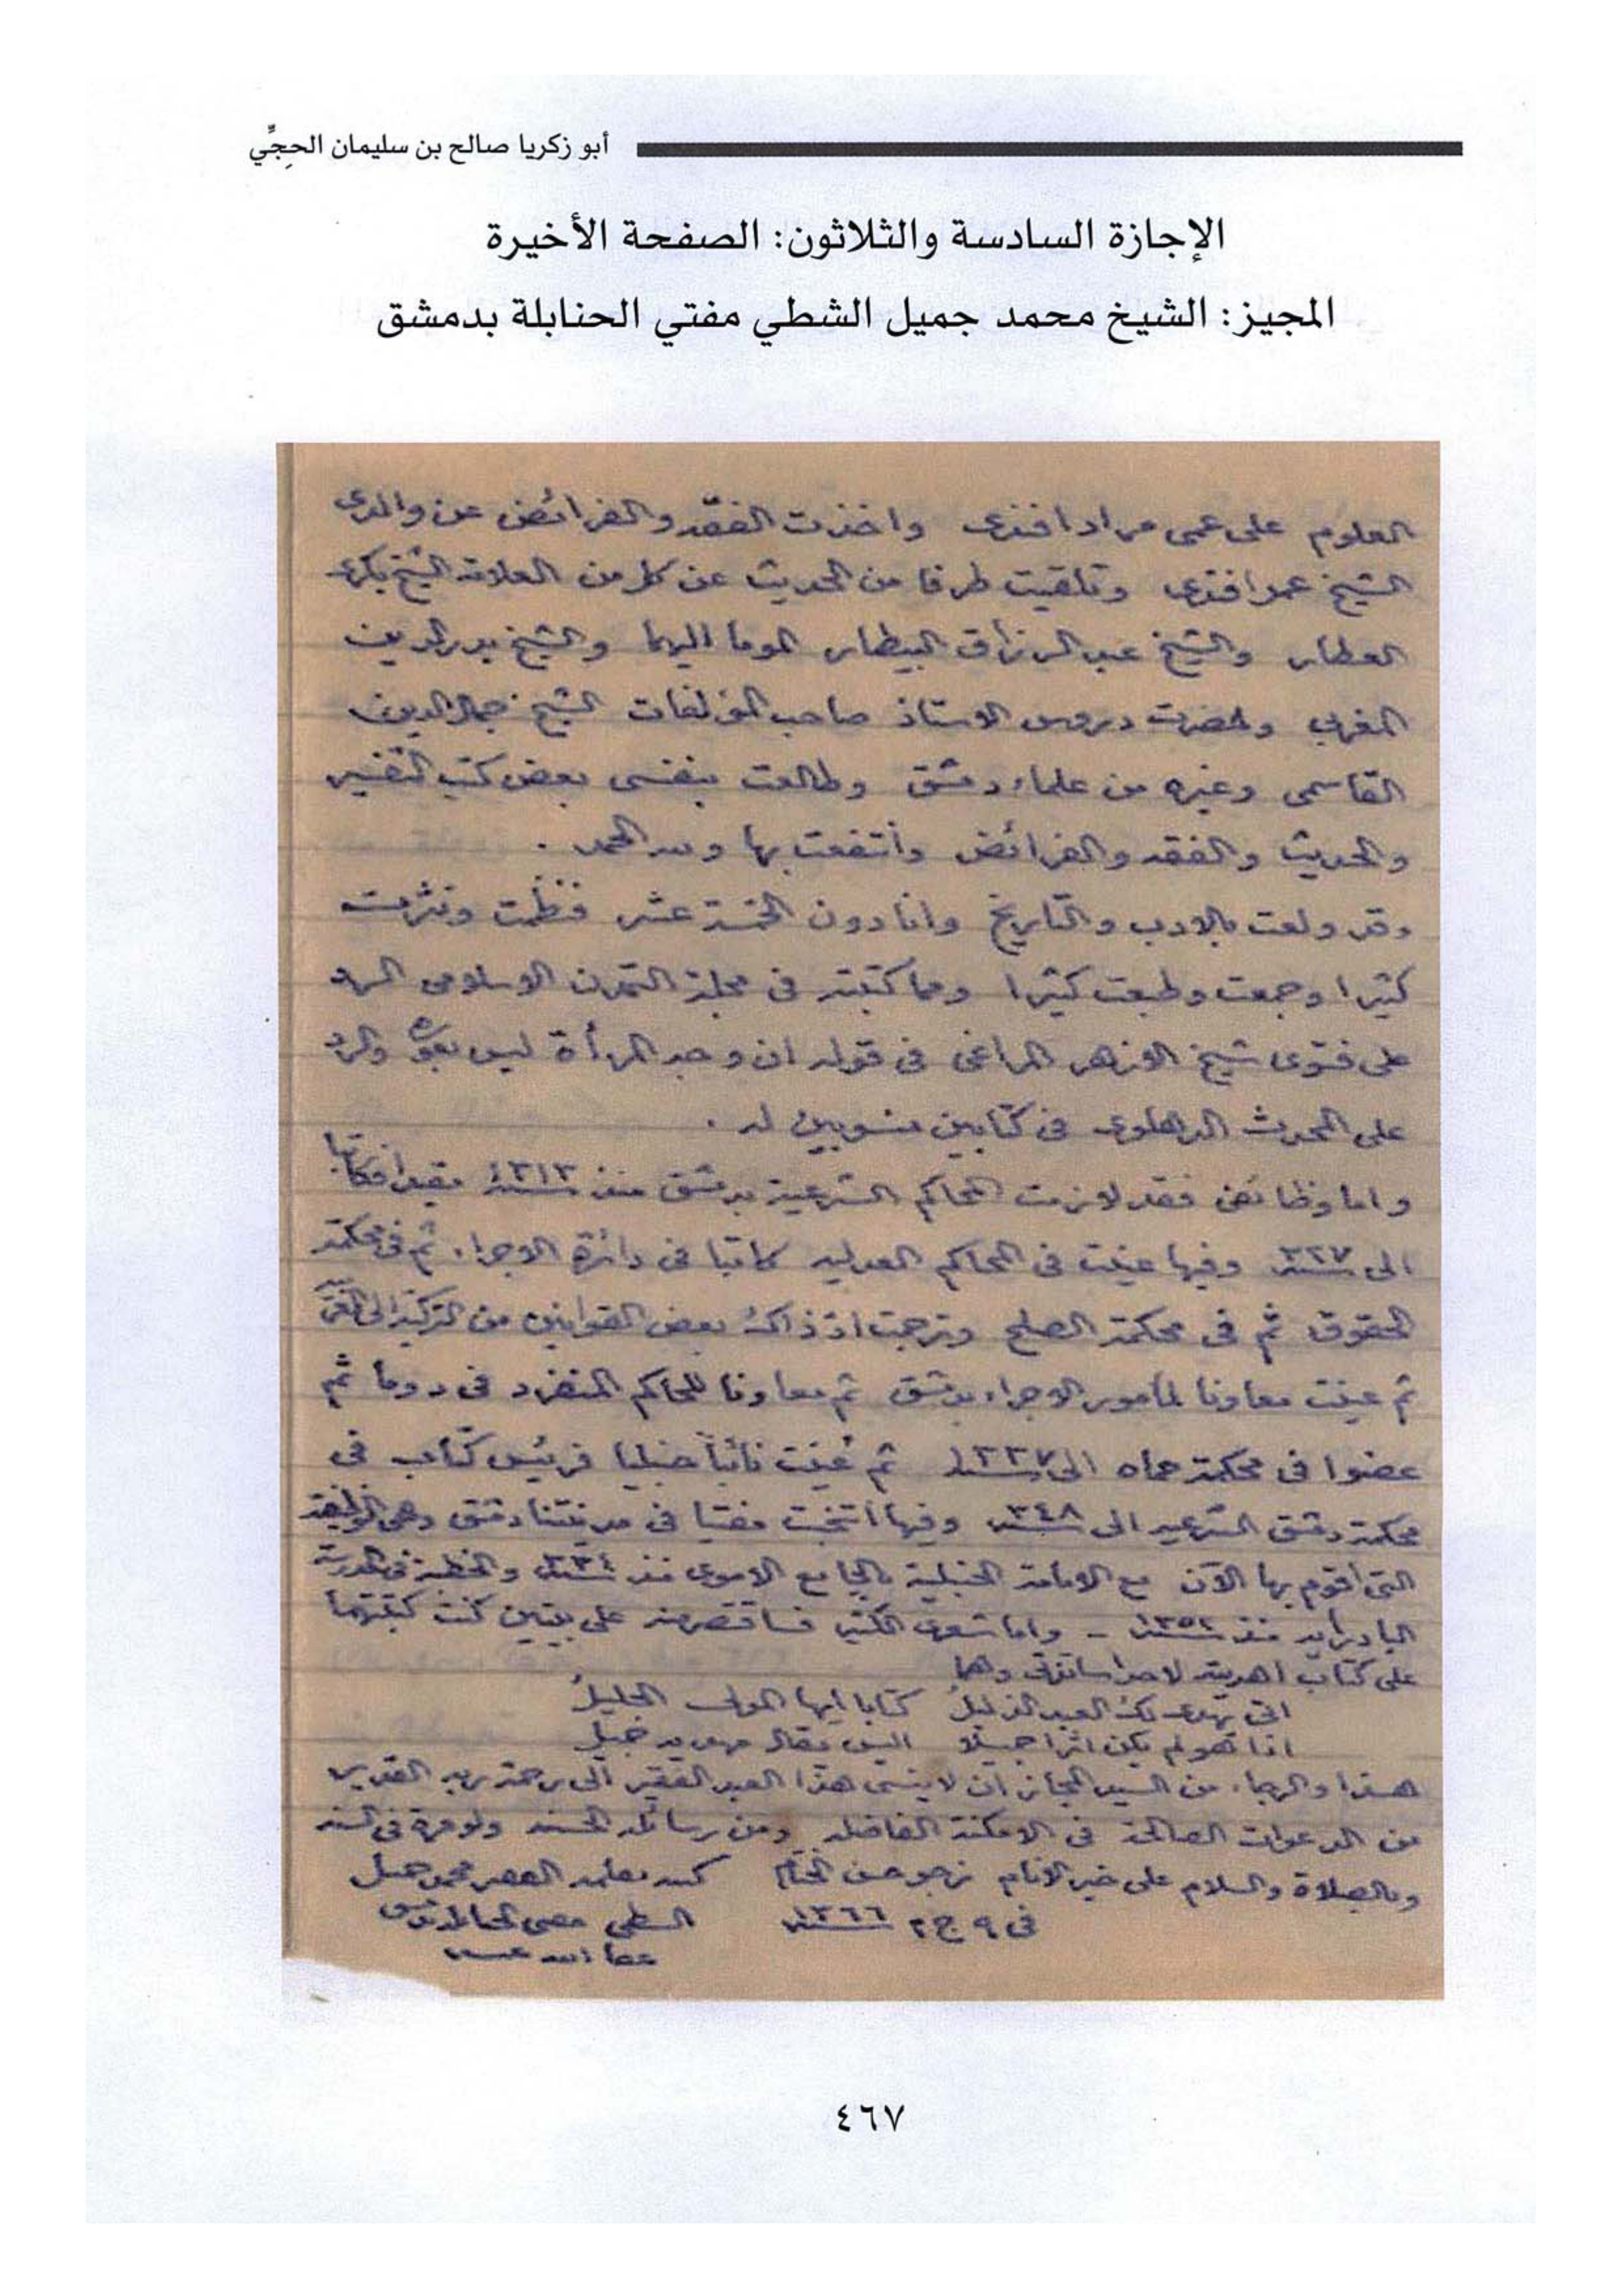 أبو زكريا صالح بن سليمان الحِجِّي
الإجازة السادسة والثلاثون: الصفحة الأخيرة
المجيز: الشيخ محمد جميل الشطي مفتي الحنابلة بدمشق
العلوم على عمى مراد افندى واخذت الفقه والفرائض عن والدى
الشيخ عمر افندى وتلقيت طرفا من الحديث عن كل من العلامة الشيخ بكرى
العطار والشيخ عبد الرزاق البيطار الموما اليهما والشيخ بدر الدين
المغربى وحضرت دروس الاستاذ صاحب المؤلفات الشيخ جمال الدين
القاسمى وغيره من علماء دمشق وطالعت بنفسى بعض كتب التفسير
والحديث والفقه والفرائض وانتفعت بها ولله الحمد .
وقد ولعت بالادب والتاريخ وانا دون الخمسة عشر فنظمت ونثرت
كثيرا وجمعت وطبعت كثيرا ومما كتبته فى مجلة التمدن الاسلامى الرد
على فتوى شيخ الازهر المراغى فى قوله ان وجه المرأة ليس بعورة والرد
على المحدث الدهلوى فى كتابين منسوبين له .
واما وظائفى فقد لازمت المحاكم الشرعية بدمشق منذ سنة ١٣١٣ مقيدا فكاتبا
الى سنة ٣٢٧ وفيها عينت فى المحاكم العدلية كاتبا فى دائرة الاجراء ثم فى محكمة
الحقوق ثم فى محكمة الصلح وترجمت اذ ذاك بعض القوانين من التركية الى العربية
ثم عينت معاونا لمأمور الاجراء بدمشق ثم معاونا للحاكم المنفرد فى دوما ثم
عضوا فى محكمة حماه الى سنة ١٣٣٧ ثم عُينت نائباً حنبليا فرئيس كتّاب فى
محكمة دمشق الشرعية الى سنة ٣٤٨ وفيها انتخبت مفتيا فى مدينتنا دمشق وهى الوظيفة
التى اقوم بها الآن مع الامامة الحنبلية بالجامع الاموى منذ سنة ٣٣٤ والخطبة فى المدرسة
البادرائية منذ سنة ١٣٥٢ - واما شعرى الكثير فساقتصر منه على بيتين كنت كتبتهما
على كتاب اهديته لاحد اساتذتى وهما
اتى يهدى لك العبد الذليلُ كتابا ايها المولى الجليلُ
اذا هو لم يكن اثرا جميلا اليس يقال مهديه جميل
هذا والرجاء من السيد المجاز ان لا ينسى هذا العبد الفقير الى رحمة ربه القدير
من الدعوات الصالحة فى الامكنة الفاضلة ومن رسائله الحسنة ولو مرة فى السنة
وبالصلاة والسلام على خير الانام نرجو حسن الختام كتبه بقلمه الفقير محمد جميل
فى ٩ ج ٢ سنة ١٣٦٦ الشطى مفتى الحنابلة بدمشق
عفا الله عنه
٤٦٧